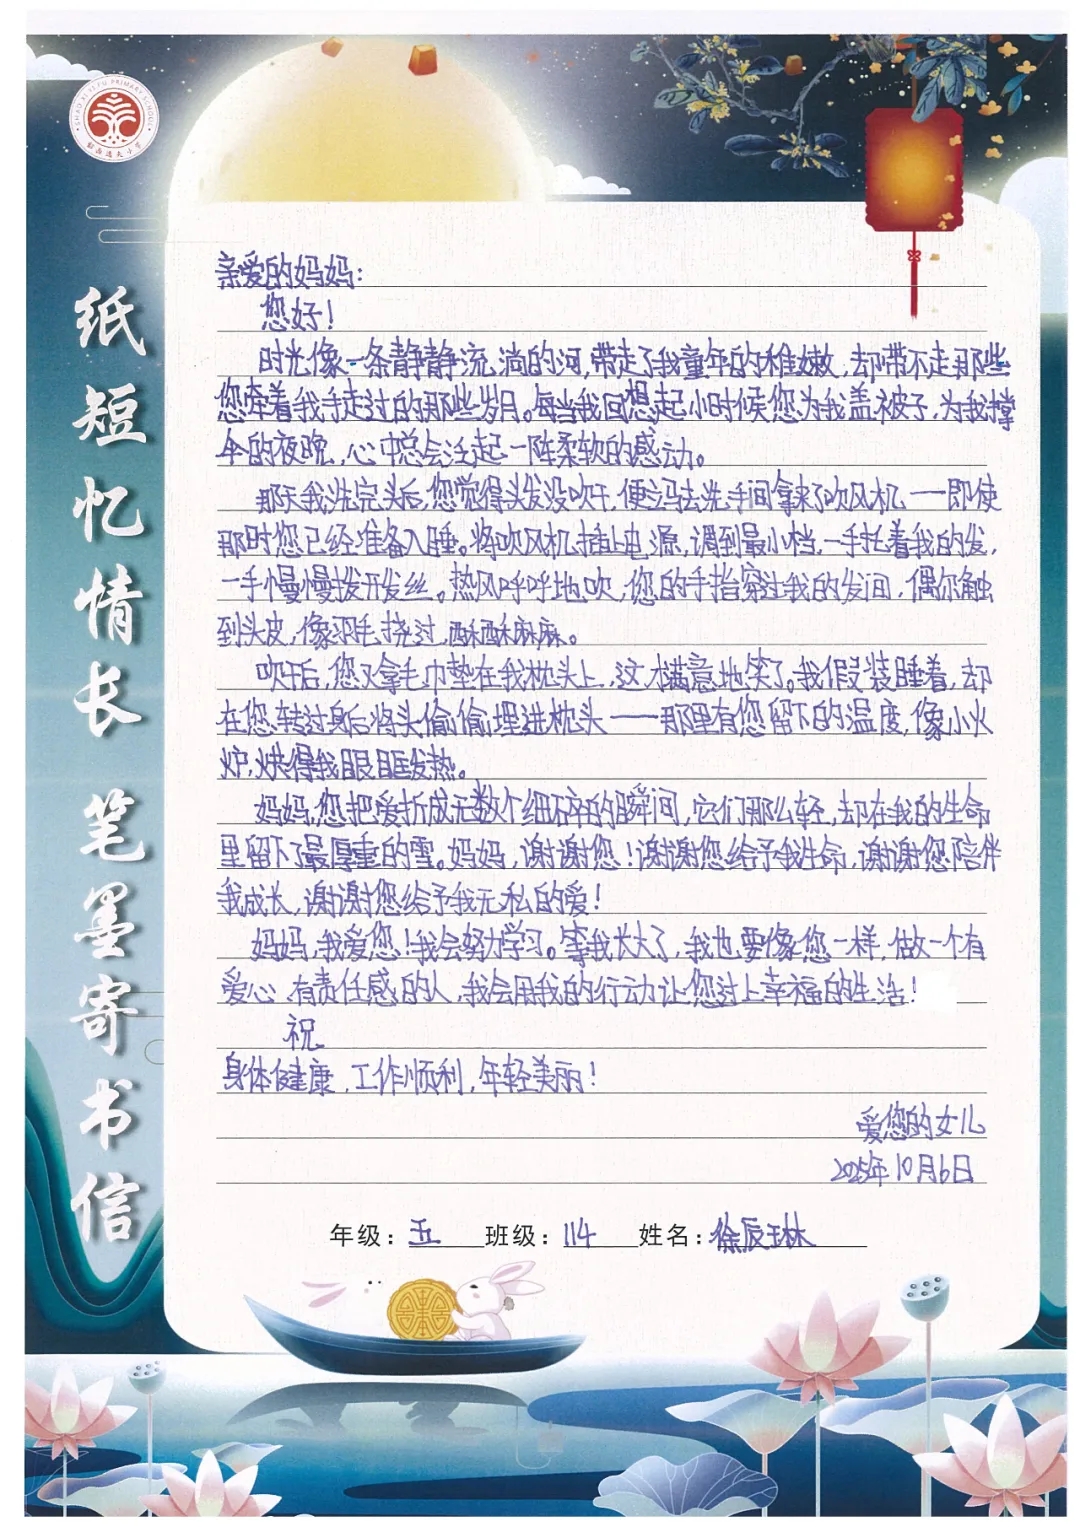 SHAO XI YI FU PRIMARY SCHOOL
邵西逸夫小学
纸短忆情长 笔墨寄书信
亲爱的妈妈：
您好！
时光像一条静静流淌的河，带走了我童年的稚嫩，却带不走那些
您牵着我手走过的那些岁月。每当我回想起小时候您为我盖被子，为我撑
伞的夜晚，心中总会泛起一阵柔软的感动。
那天我洗完头后，您觉得头发没吹干，便立马去洗手间拿来了吹风机——即使
那时您已经准备入睡。将吹风机插上电源，调到最小档，一手托着我的发，
一手慢慢拨开发丝。热风呼呼地吹，您的手指穿过我的发间，偶尔触
到头皮，像羽毛挠过，酥酥麻麻。
吹干后，您又拿毛巾垫在我枕头上，这才满意地笑了。我假装睡着，却
在您转过身后将头偷偷埋进枕头——那里有您留下的温度，像小火
炉，烘得我眼眶发热。
妈妈，您把爱折成无数个细碎的瞬间，它们那么轻，却在我的生命
里留下了最厚重的雪。妈妈，谢谢您！谢谢您给予我生命，谢谢您陪伴
我成长，谢谢您给予我无私的爱！
妈妈，我爱您！我会努力学习。等我长大了，我也要像您一样，做一个有
爱心，有责任感的人，我会用我的行动让您过上幸福的生活！
祝
身体健康，工作顺利，年轻美丽！
爱您的女儿
2025年10月6日
年级：五 班级：114 姓名：徐辰琳